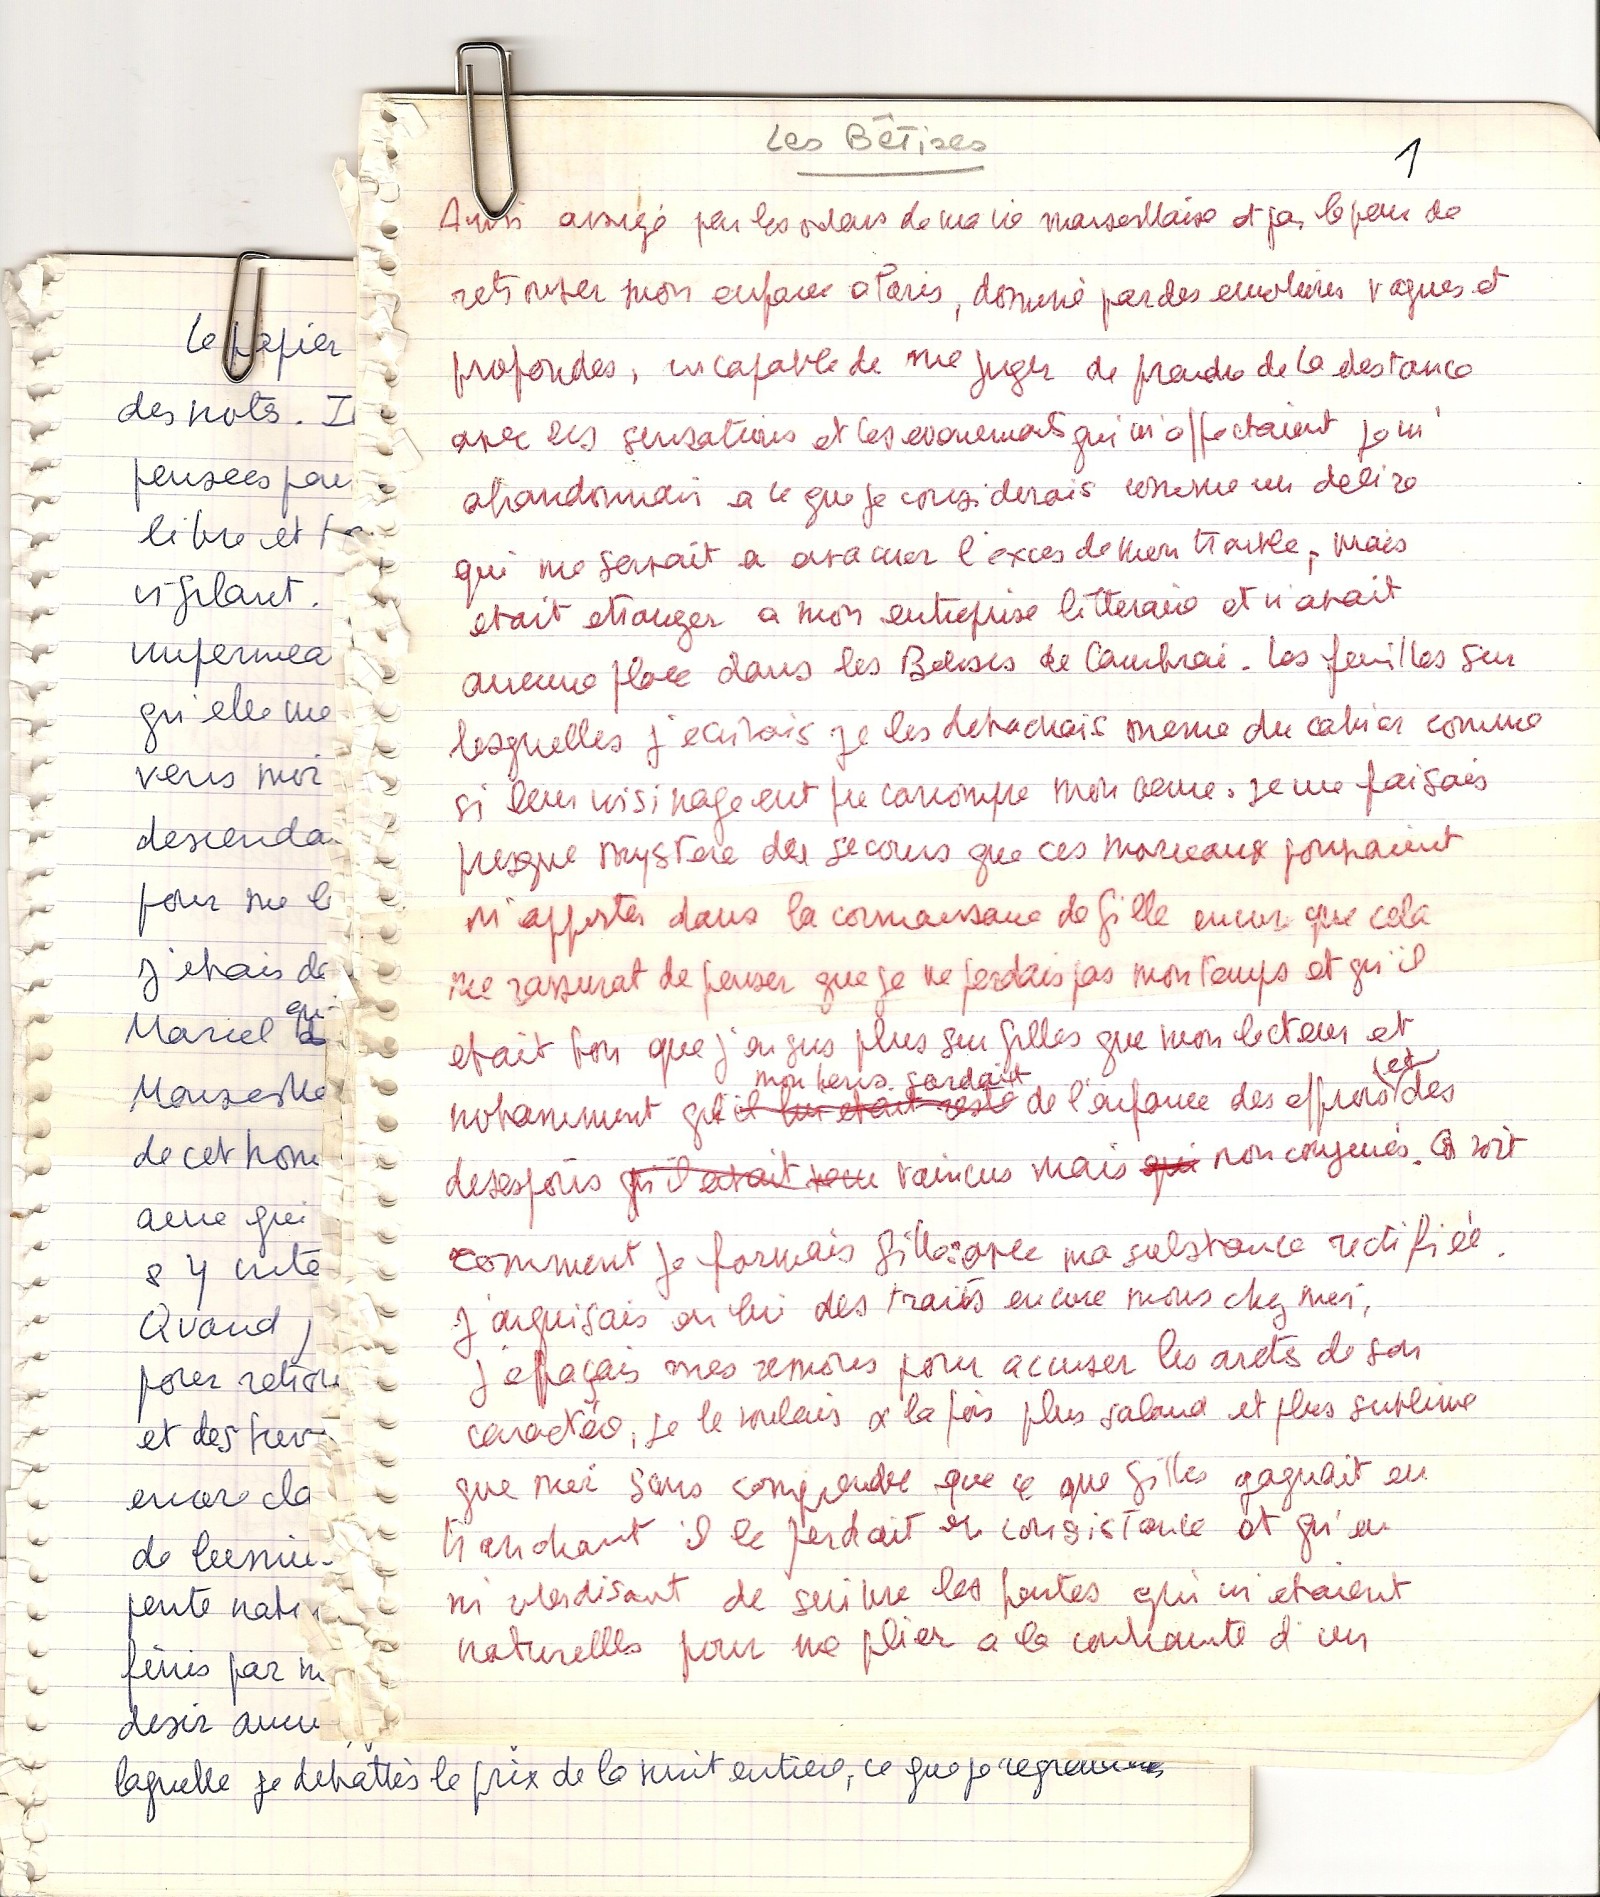 Les Bêtises
1
Aussi assiégé par les odeurs de ma vie marseillaise et par la peur de
retrouver mon enfance a Paris, dominé par des emotions vagues et
profondes, incapable de me juger de prendre de la distance
avec les sensations et les evenements qui m'affectaient je m'
abandonnais a ce que je considerais comme un delire
qui me servait a evacuer l'exces de mon trouble, mais
etait etranger a mon entreprise litteraire et n'avait
aucune place dans les Betises de Cambrai. Les feuilles sur
lesquelles j'ecrivais je les detachais meme du cahier comme
si leur voisinage eut pu corrompre mon œuvre. Je me faisais
presque mystere des secours que ces morceaux pouvaient
m'apporter dans la connaissance de Gille encore que cela
me rassurat de penser que je ne perdais pas mon temps et qu'il
etait bon que j'en sus plus sur Gilles que mon lecteur et
mon heros gardait et
notamment qu'il lui etait resté de l'enfance des effrois des
desespoirs qu'il avait vaincus mais qui non conjurés. On voit
comment je formais Gilles avec ma substance rectifiée.
J'aiguisais en lui des traits encore mous chez moi,
j'effaçais mes remous pour accuser les arets de son
caractère, je le voulais a la fois plus salaud et plus sublime
que moi sans comprendre que ce que Gilles gagnait en
tranchant il le perdait en consistance et qu'en
m'interdisant de suivre les pentes qui m'etaient
naturelles pour me plier a la contrainte d'un
Le papier
des mots. I
pensees pou
libre et
vigilant.
impermea
qu'elle me
vers moi
descenda
pour me l
j'etais de
qui
Marcel
Marseille
de cet hom
ame qui
s'y inte
Quand j
pour retrou
et des
encore cla
de lumie
pente natu
finis par m
desir aucu
laquelle je debattis le prix de la nuit entiere, ce que je